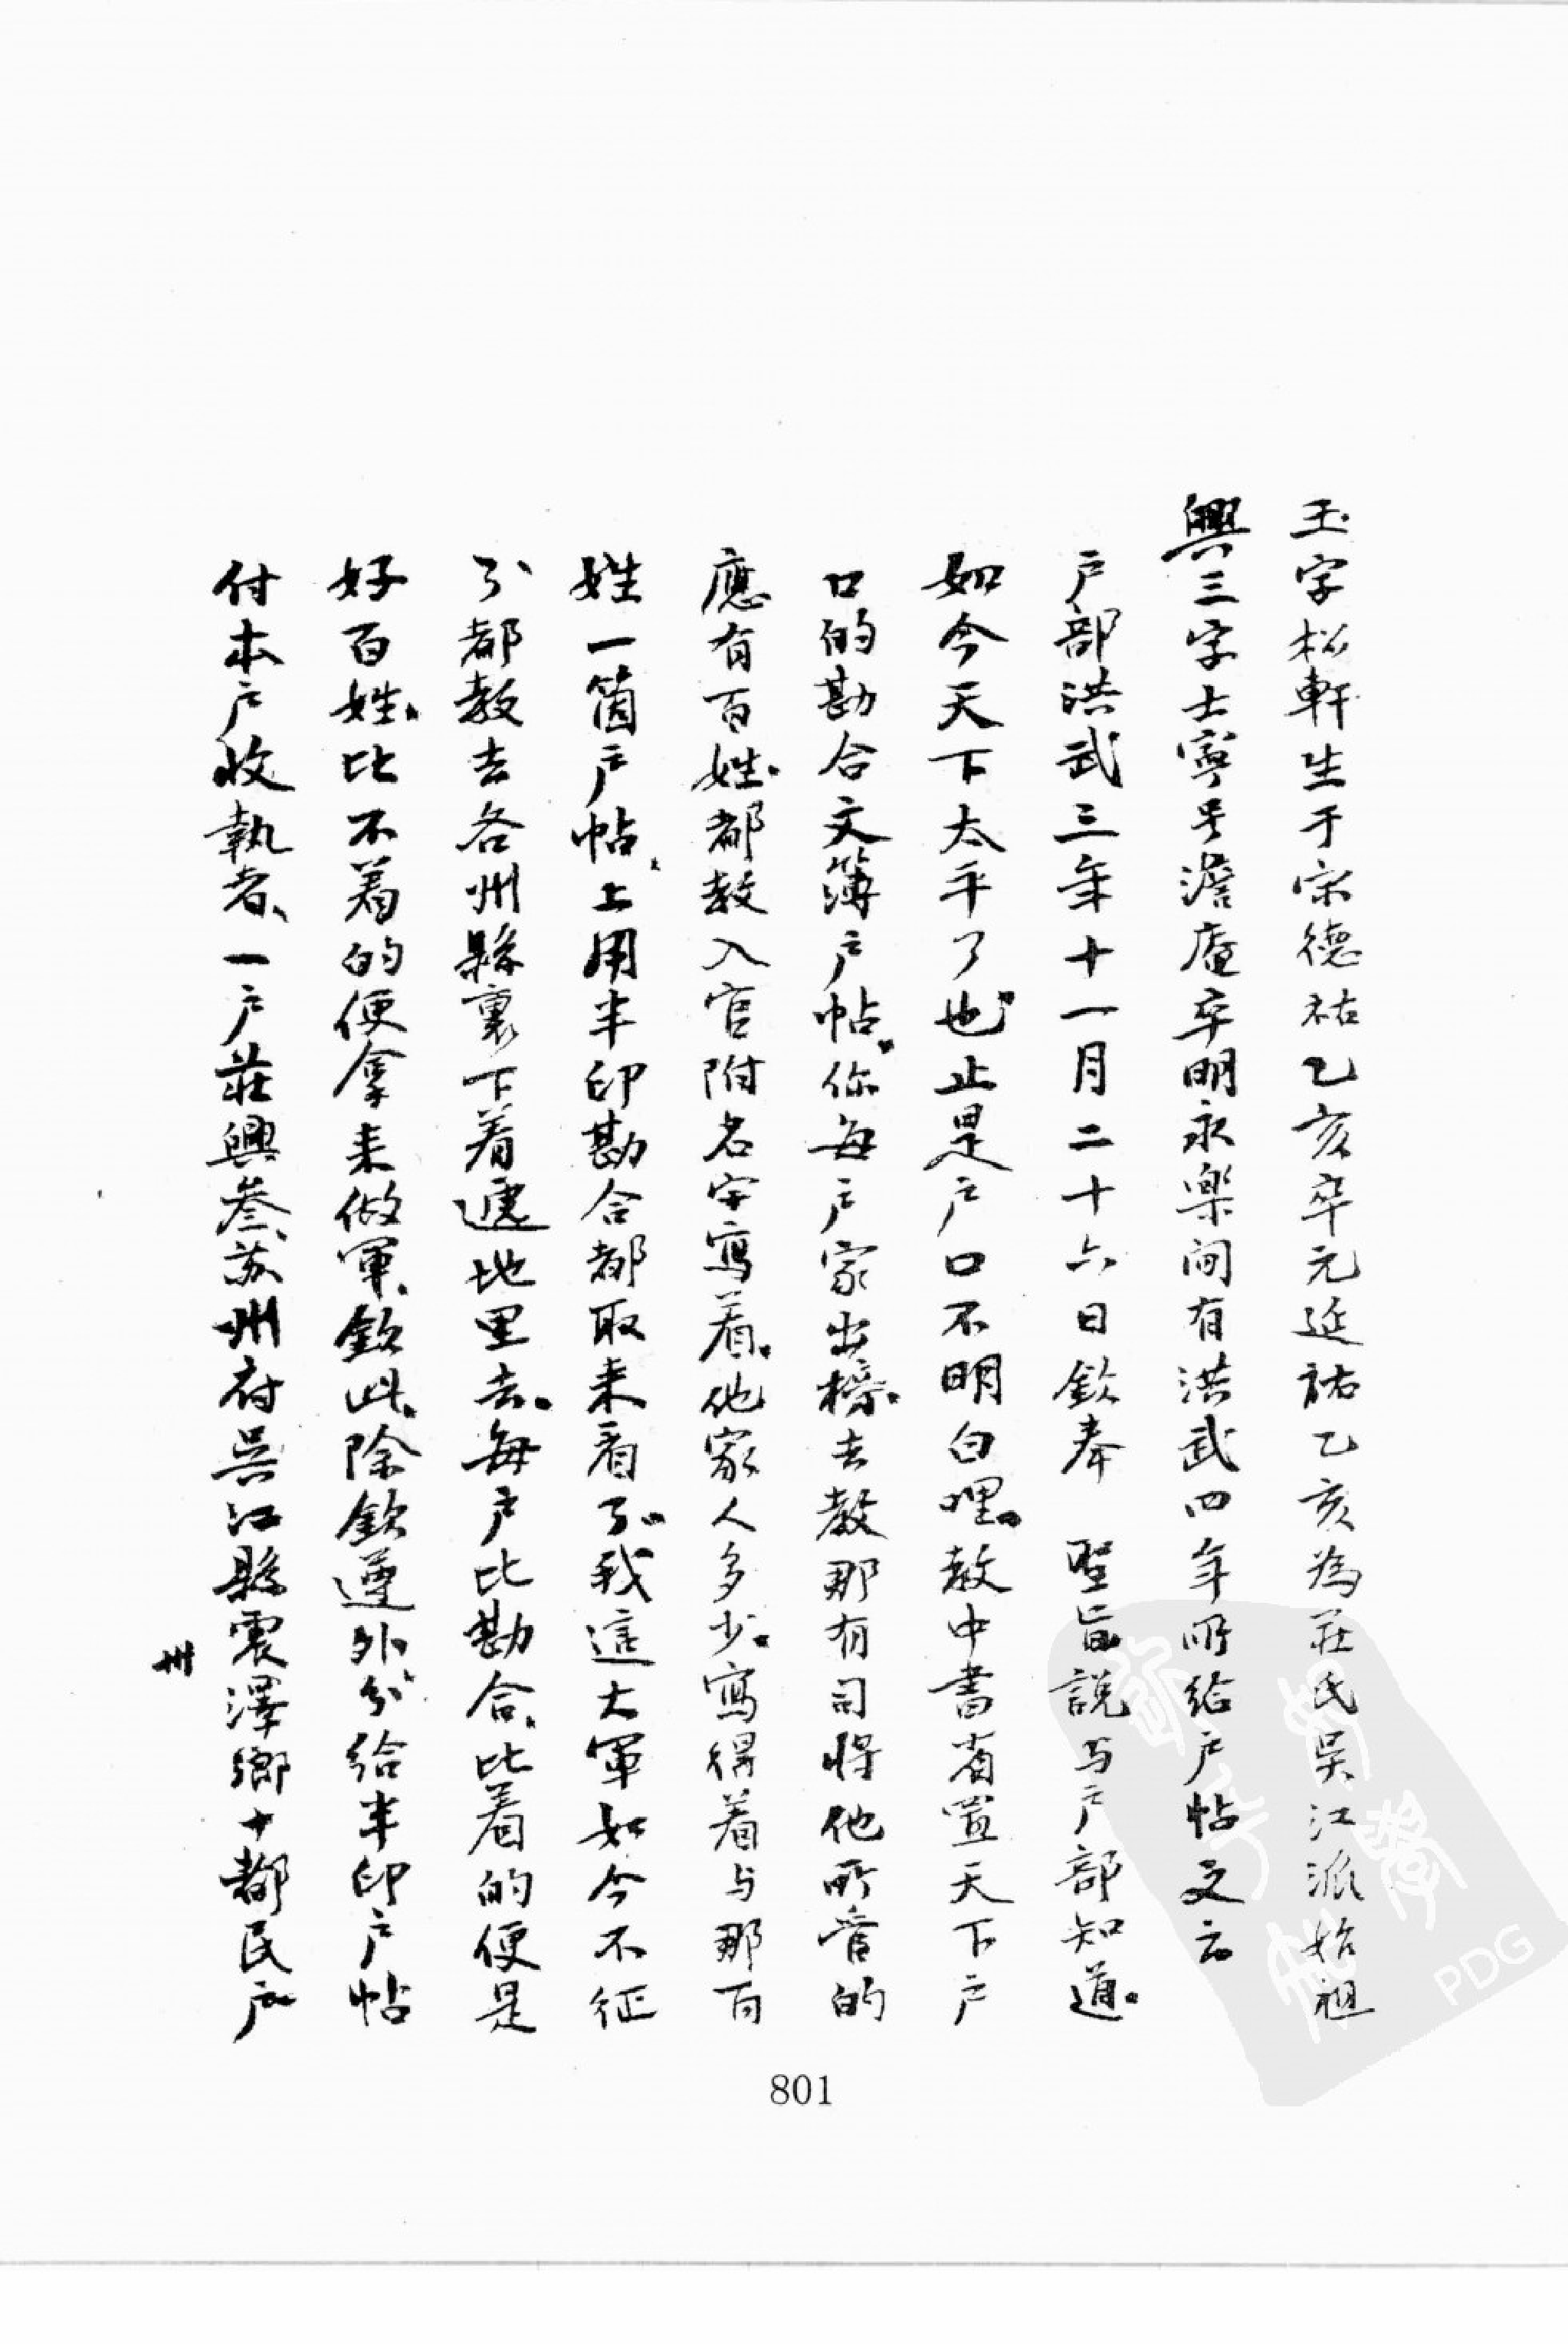 玉字松軒生于宋德祐乙亥卒元延祐乙亥為莊氏吴江派始祖
興三字士寧号澹庵卒明永樂间有洪武四年所给户帖文云
户部洪武三年十一月二十六日欽奉 聖旨説与户部知道。
如今天下太平了也，止是户口不明白哩。教中書省置天下户
口的勘合文簿户帖。你每户家出榜。去教那有司将他所管的
應有百姓。都教入官附名字寫着。他家人多少。寫得着与那百
姓一箇户帖、上用半印勘合都取来看了。我這大軍如今不征
了都教去各州縣裏下着遶地里去。每户比勘合、比着的便是
好百姓、比不着的便拿来做軍、欽此、除欽遵外、今给半印户帖
付本户收執者、一户莊興叁、苏州府吴江縣震澤鄉十都民户
卅
801
PDG